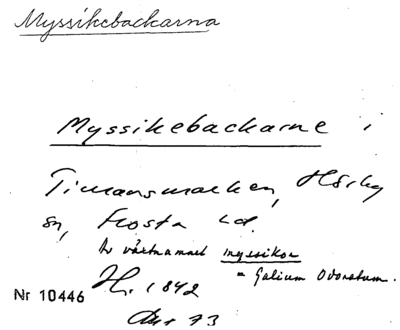 Myssikebackarna
Myssikebackarne i
Timansmarken, Hörby
sn, Frosta hd.
Av växtnamnet myssikor
= Galium Odoratum.
H. 1842
Nr 10446
73